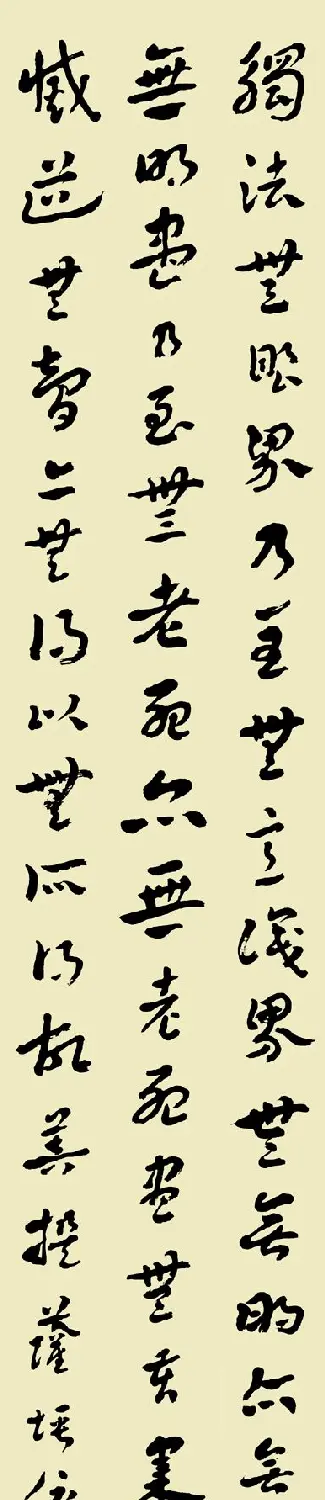 觸法無眼界乃至無意識界無無明亦無
無明盡乃至無老死亦無老死盡無苦集
滅道無智亦無得以無所得故菩提薩埵依